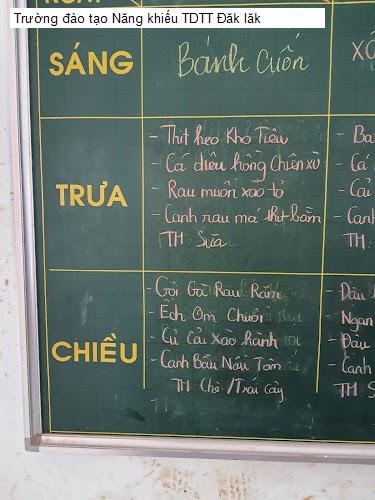 Trường đào tạo Năng khiếu TDTT Đăk lăk
SÁNG
Bánh Cuốn
XÔ
TRƯA
- Thịt heo Kho Tiêu
- Cá diêu hồng Chiên xù
- Rau muốn xào tỏ
- Canh rau má thịt bằm
TM Sữa
- Ba
- Cá
- Cải
- Canh
TM:
CHIỀU
- Gỏi Gà Rau Răm
- Ếch Om Chuối
- Củ Cải Xào hành
- Canh Bầu Nấu Tôm
TM Chè / Trái Cây
- Đậu
Ngan
- Đậu
- Canh
TM S